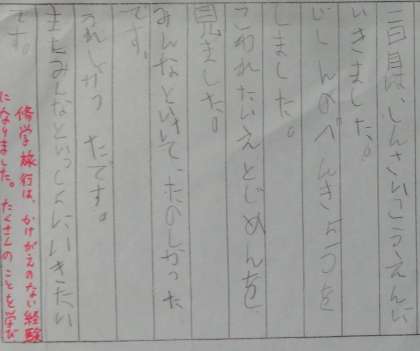 三日目は、しんさいこうえんに
いきました。
じしんのべんきょうを
しました。
こわれたいえとじめんを
見ました。
みんなといけて、たのしかった
です。
うれしかったです。
またみんなといっしょにいきたい
です。
修学旅行は、かけがえのない経験
になりました。たくさんのことを学び